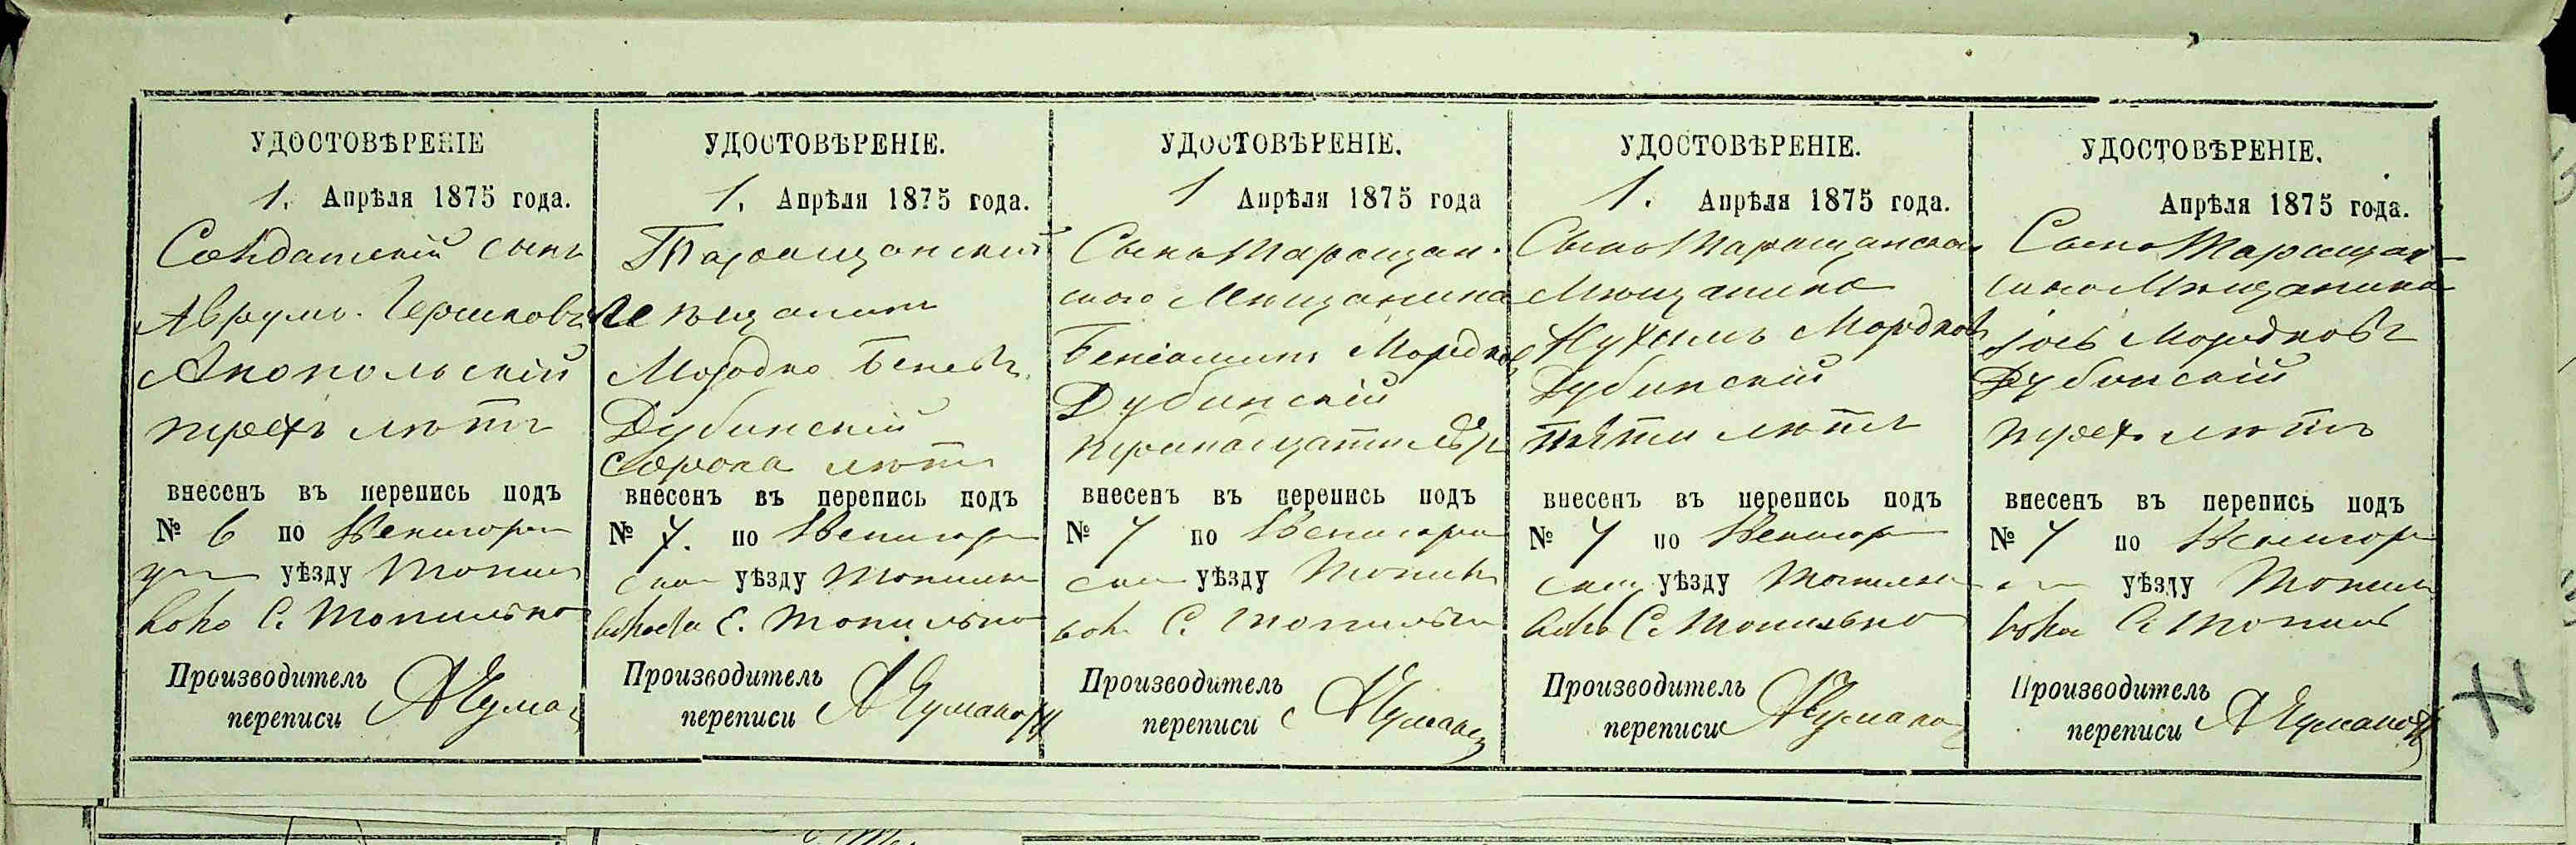 УДОСТОВѢРЕНІЕ
1. Апрѣля 1875 года.
Солдатскій сынъ
Аврумъ Гершковъ
Янопольскій
трехъ лѣтъ
внесенъ въ перепись подъ
№ 6 по Звенигор
уѣзду Топиль
С. Топильно
Производитель
переписи
УДОСТОВѢРЕНІЕ.
1. Апрѣля 1875 года.
Таращанскій
Мѣщанинъ
Мордко Беневъ
Дубинскій
сорока лѣтъ
внесенъ въ перепись подъ
№ 7. по Звенигор
ско уѣзду Топиль
С. Топильно
Производитель
переписи
УДОСТОВѢРЕНІЕ.
1 Апрѣля 1875 года
Сынъ Таращан
ского Мѣщанина
Беніаминъ Мордков
Дубинскій
тринадцати лѣт
внесенъ въ перепись подъ
№ 7 по Звенигор
ско уѣзду Топиль
С. Топильн
Производитель
переписи
УДОСТОВѢРЕНІЕ.
1. Апрѣля 1875 года.
Сынъ Таращанска
Мѣщанина
Нухимъ Мордков
Дубинскій
пяти лѣтъ
внесенъ въ перепись подъ
№ 7 по Звенигор
ску уѣзду Топиль
С. Топильно
Производитель
переписи
УДОСТОВѢРЕНІЕ.
Апрѣля 1875 года.
Сынъ Таращан-
ского Мѣщанина
Іось Мордковъ
Дубинскій
трехъ лѣтъ
внесенъ въ перепись подъ
№ 7 по Звенигор
уѣзду Топиль
С. Топиль
Производитель
переписи